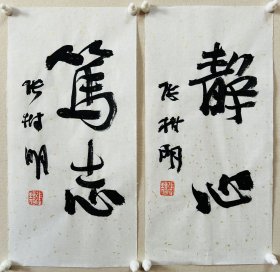 篤志
张树明
静心
张树明